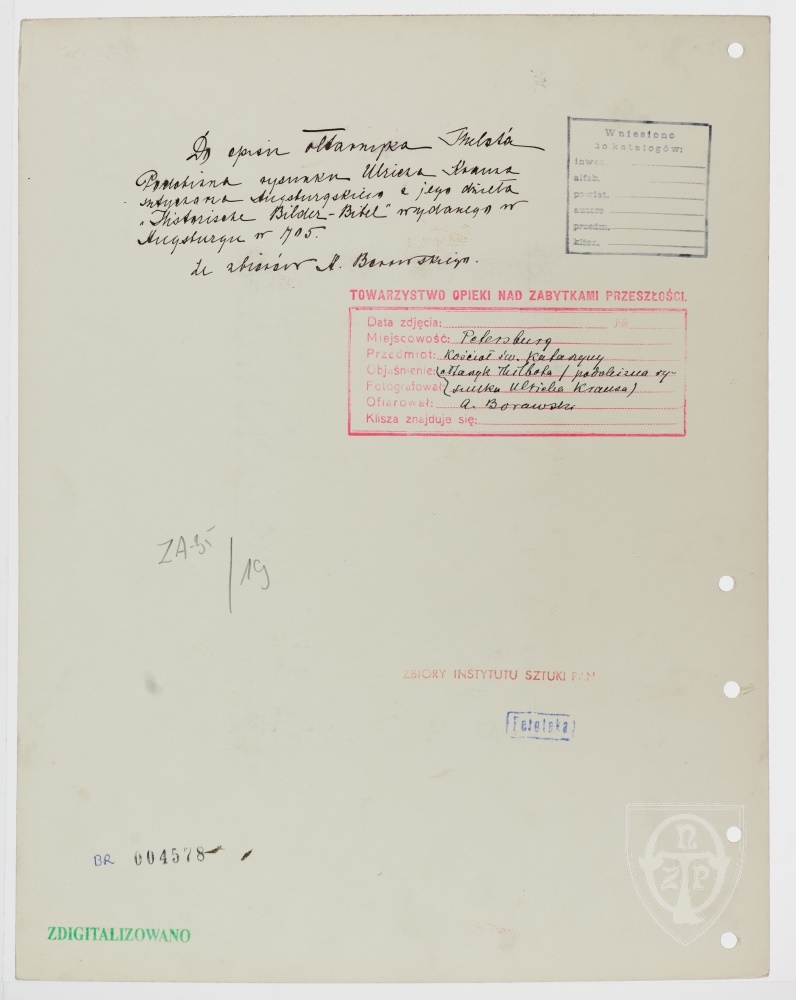 Do opisu ołtarzyka Thelota
Podobizna rysunku Ulricha Krausa
sztycharza Augsburgskiego z jego dzieła
"Historische Bilder-Bibel" wydanego w
Augsburgu w 1705.
Ze zbiorów A. Borawskiego.
Wniesiono
do katalogów:
inwen.
alfab.
powiat.
autors
przedm.
klisz.
TOWARZYSTWO OPIEKI NAD ZABYTKAMI PRZESZŁOŚCI.
Data zdjęcia: 19
Miejscowość: Petersburg
Przedmiot: Kościoł św. Katarzyny
Objaśnienie: (podobizna ry-
Fotografował: sunku Ulricha Krausa)
Ofiarował: A. Borawski
Klisza znajduje się:
ZA-5/19
ZBIORY INSTYTUTU SZTUKI PAN
Fototeka
BR 004578
ZDIGITALIZOWANO
n
Z P